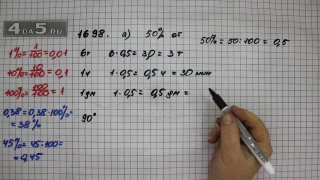 4DA5.RU
1698. а) 50% от
50% = 50:100 = 0,5
1% = 1/100 = 0,01
10% = 10/100 = 0,1
100% = 100/100 = 1
0,38 = 0,38·100% = 38%
45% = 45:100 = 0,45
6т 6·0,5 = 3,0 = 3 т
1ч 1·0,5 = 0,5 ч = 30 мин
1дм 1·0,5 = 0,5 дм =
90°